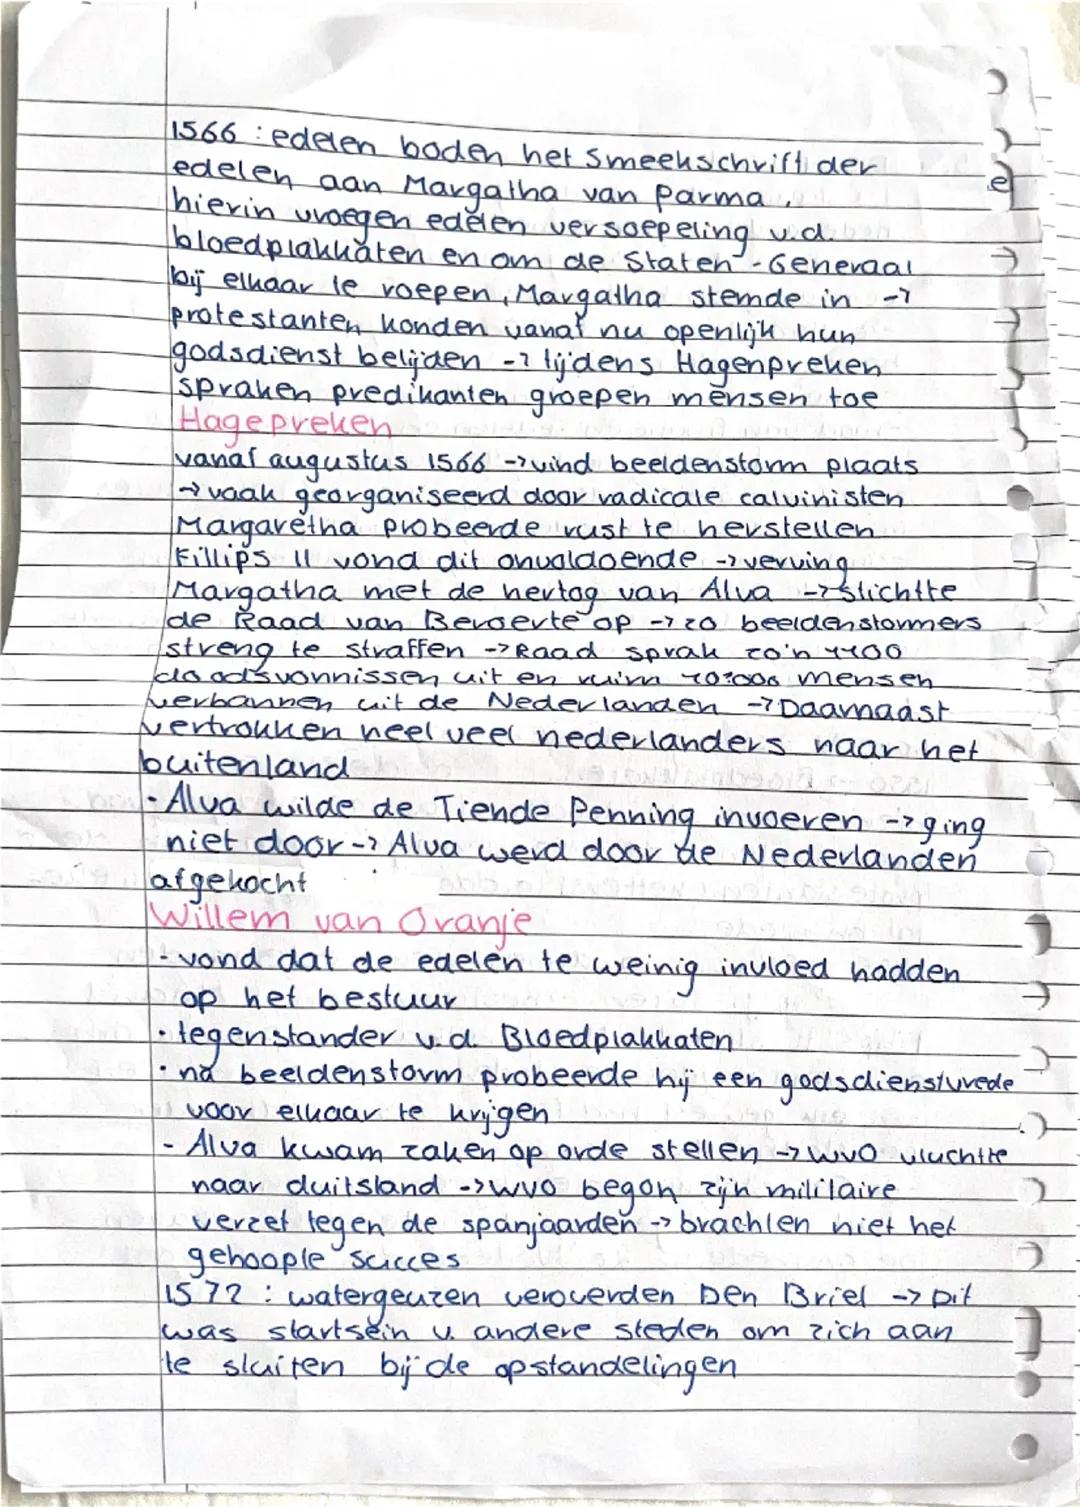 1566 : edelen boden het Smeekschrift der
edelen aan Margatha van Parma.
hierin vroegen edelen versoepeling v.d.
bloedplakkaten en om de Staten-Generaal
bij elkaar te roepen, Margatha stemde in ->
protestanten konden vanaf nu openlijk hun
godsdienst belijden -> tijdens Hagenpreken
spraken predikanten groepen mensen toe
Hagepreken
vanaf augustus 1566 -> vind beeldenstorm plaats
-> vaak georganiseerd door radicale calvinisten
Margaretha probeerde rust te herstellen
Fillips II vond dit onvoldoende -> verving
Margatha met de hertog van Alva -> stichtte
de Raad van Beroerte op -> zo beeldenstormers
streng te straffen -> Raad sprak zo'n 1100
doodsvonnissen uit en ruim 10.000 mensen
verbannen uit de Nederlanden -> Daarnaast
vertrokken heel veel nederlanders naar het
buitenland
· Alva wilde de Tiende Penning invoeren -> ging
niet door -> Alva werd door de Nederlanden
afgekocht
Willem van Oranje
- vond dat de edelen te weinig invloed hadden
op het bestuur
· tegenstander v.d. Bloedplakkaten
· na beeldenstorm probeerde hij een godsdienstvrede
voor elkaar te krijgen
- Alva kwam zaken op orde stellen -> WvO vluchtte
naar duitsland -> WvO begon zijn militaire
verzet tegen de spanjaarden -> brachten niet het
gehoopte succes
1572 : watergeuzen veroverden Den Briel -> Dit
was startsein v. andere steden om zich aan
te sluiten bij de opstandelingen